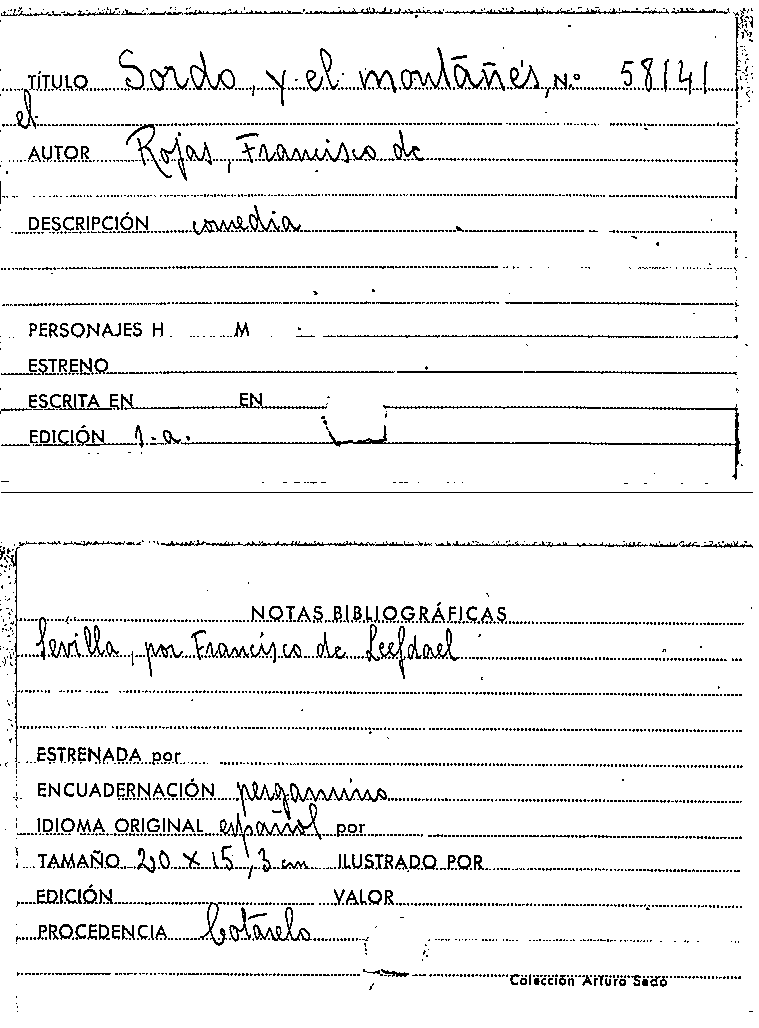 TÍTULO Sordo, y el montañés, N.º 58141
el
AUTOR Rojas, Francisco de
DESCRIPCIÓN comedia
PERSONAJES H M
ESTRENO
ESCRITA EN EN
EDICIÓN 1-a.
NOTAS BIBLIOGRÁFICAS
Sevilla, por Francisco de Leefdael
ESTRENADA por
ENCUADERNACIÓN pergamino
IDIOMA ORIGINAL español por
TAMAÑO 20 X 15,3 cm ILUSTRADO POR
EDICIÓN VALOR
PROCEDENCIA Cotarelo
Colección Arturo Sedó